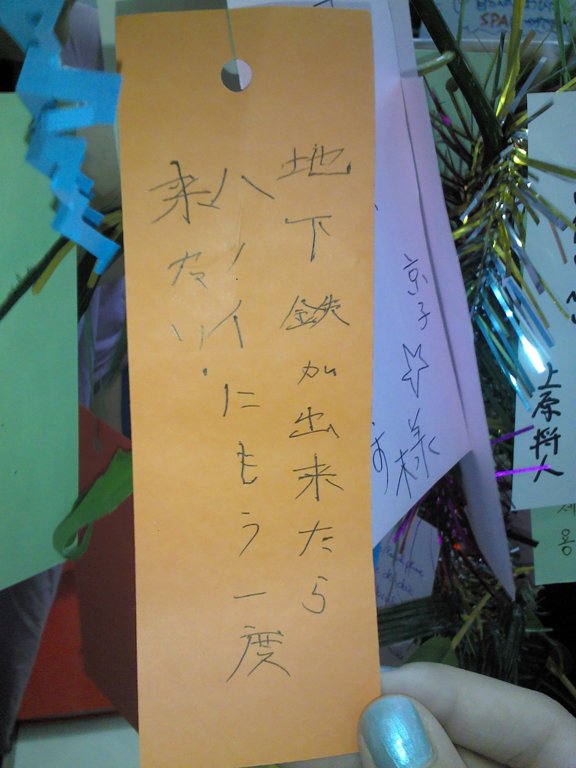 地下鉄が出来たら
ハノイにもう一度
来たい.
京子☆
様
上原将人
SPA